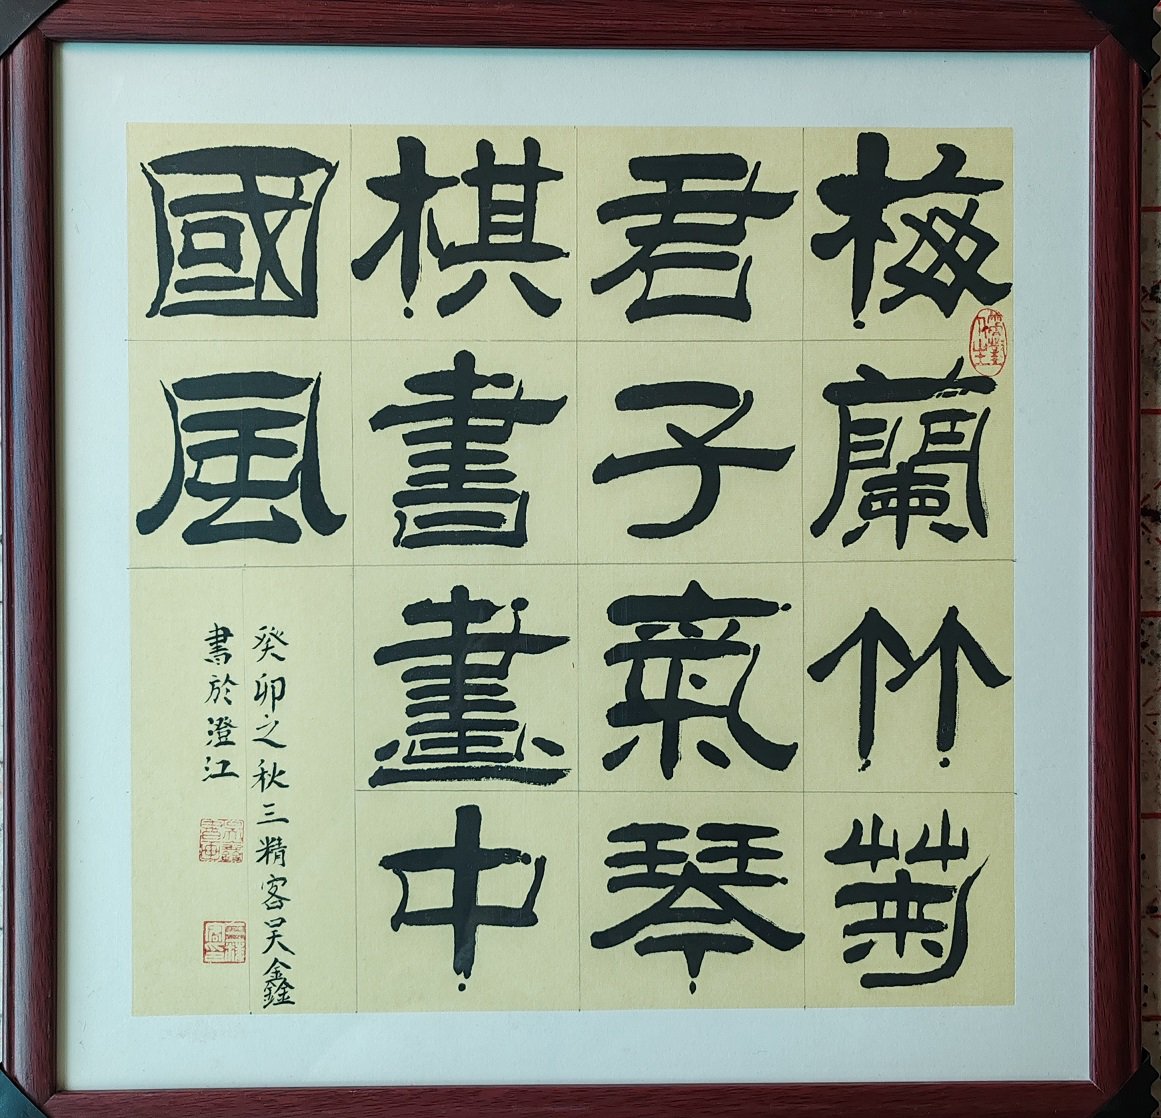 梅蘭竹菊
君子氣琴
棋書畫中
國風
癸卯之秋三精客吴鑫
書於澄江